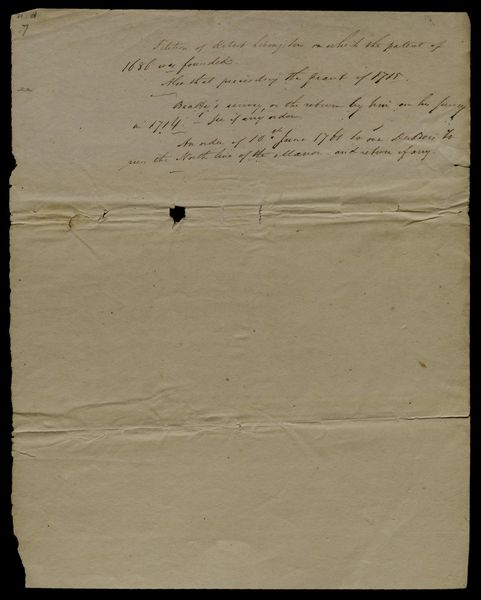 n.d
7
Petition of Robert Livingston on which the patent of
1686 was founded.
Also that preceding the grant of 1715.
survey, or the return by him on his survey
in 1714 – see if any order
An order of 10th June 1761 to one to
run the North line of the Manor – and return if any